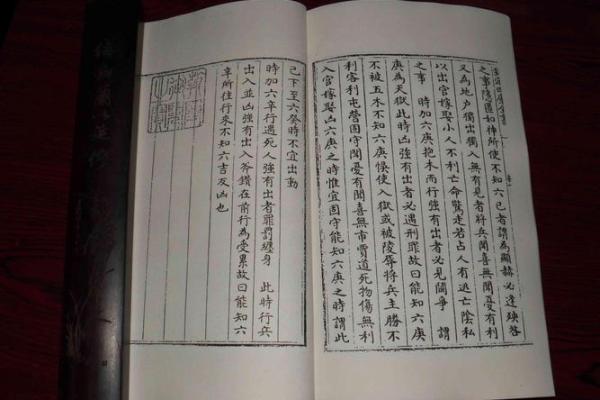 之事隱匿如神所使不知六己者謂為顯赫必逢殃咎
又為地户獨出獨入無有見者將兵聞喜無聞憂有利
以出宫嫁娶小人不利亡命驚走若占人有逃亡陰私
之事 時加六庚抱木而行強有出者必見鬭爭 謂
庚為天獄此時凶強有出者必遇刑罪故曰能知六庚
不被五木不知六庚悮使入獄或被陵辱將兵主勝不
利客利屯營固守聞憂有聞喜無市賈道死物傷無利
入宫嫁娶凶六庚之時惟宜固守能知六庚之時謂此
己下至六癸時不宜出動
時加六辛行遇死人強有出者罪罰纏身 此時行兵
出入並凶強有出入斧鑕在前行為受累故曰能知六
辛所往行來不知六吉反凶也